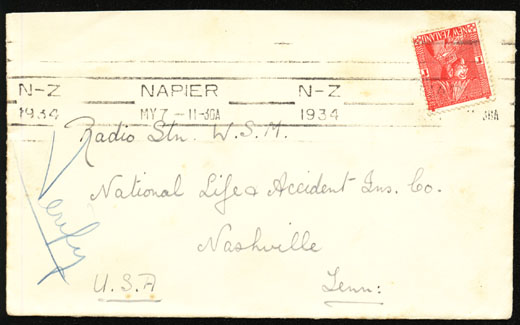 NEW ZEALAND
N-Z NAPIER N-Z
1934 MY 7 - 11-30A 1934 11-30A
Radio Stn. W.S.M.
National Life & Accident Ins. Co.
Nashville
U.S.A Tenn:
Verify